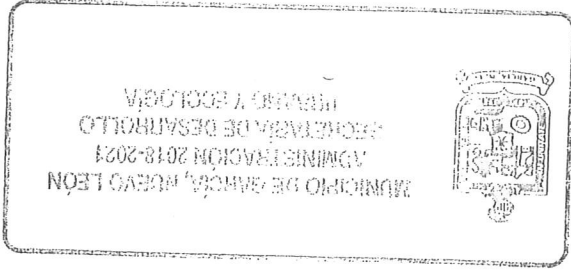 MUNICIPIO DE GARCÍA, NUEVO LEÓN
ADMINISTRACIÓN 2018-2021
SECRETARÍA DE DESARROLLO
URBANO Y ECOLOGÍA